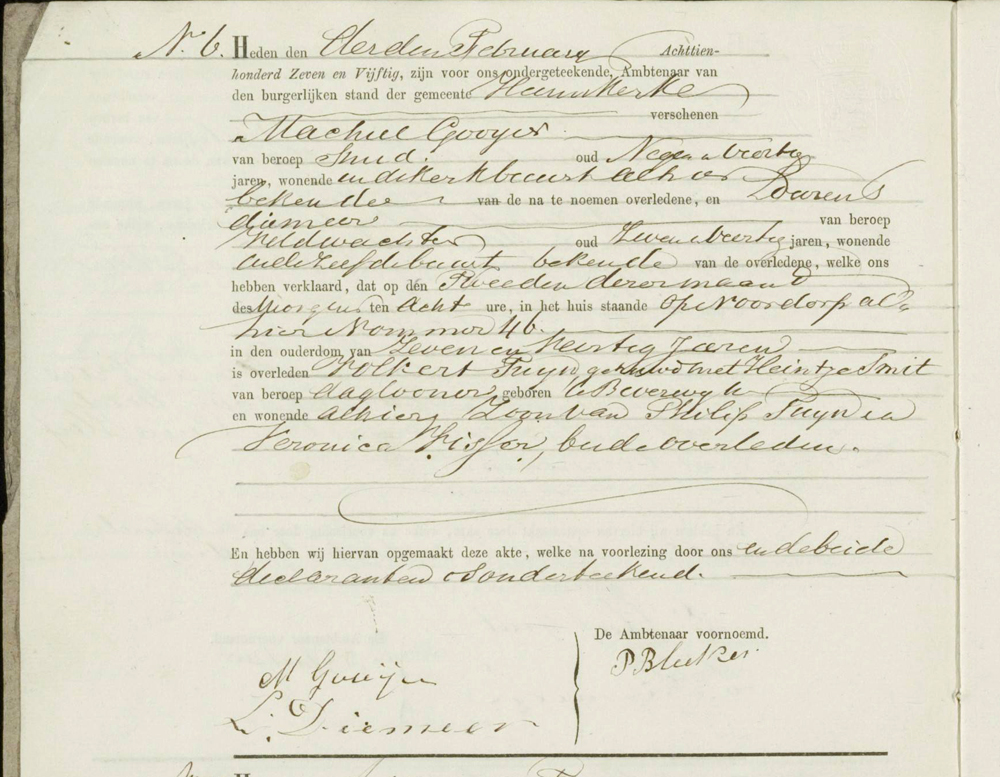 N. 6. Heden den derden February Achttien-
honderd Zeven en Vijftig, zijn voor ons ondergeteekende, Ambtenaar van
den burgerlijken stand der gemeente Heemskerk
verschenen
Machiel Gooyer
van beroep Smid. oud Negen en Veertig
jaren, wonende in de kerkbuurt alhier
bekende van de na te noemen overledene, en Lourens
diemeer van beroep
Veldwachter oud Zeven en Veertig jaren, wonende
in de Zelfde buurt bekende van de overledene, welke ons
hebben verklaard, dat op den Tweeden dezer maand
des Morgens ten Acht ure, in het huis staande op Noordorp al-
hier Nommer 46.
in den ouderdom van Zeven en Veertig Jaren
is overleden Volkert Tuyn gehuwd met Heintje Smit
van beroep daglooner geboren te Beverwyk
en wonende alhier, Zoon van Philip Tuyn en
Veronica Visser, beide overleden.
En hebben wij hiervan opgemaakt deze akte, welke na voorlezing door ons en de beide
declaranten is onderteekend.
De Ambtenaar voornoemd.
P Bleeker
M Gooijer
L. Diemeer